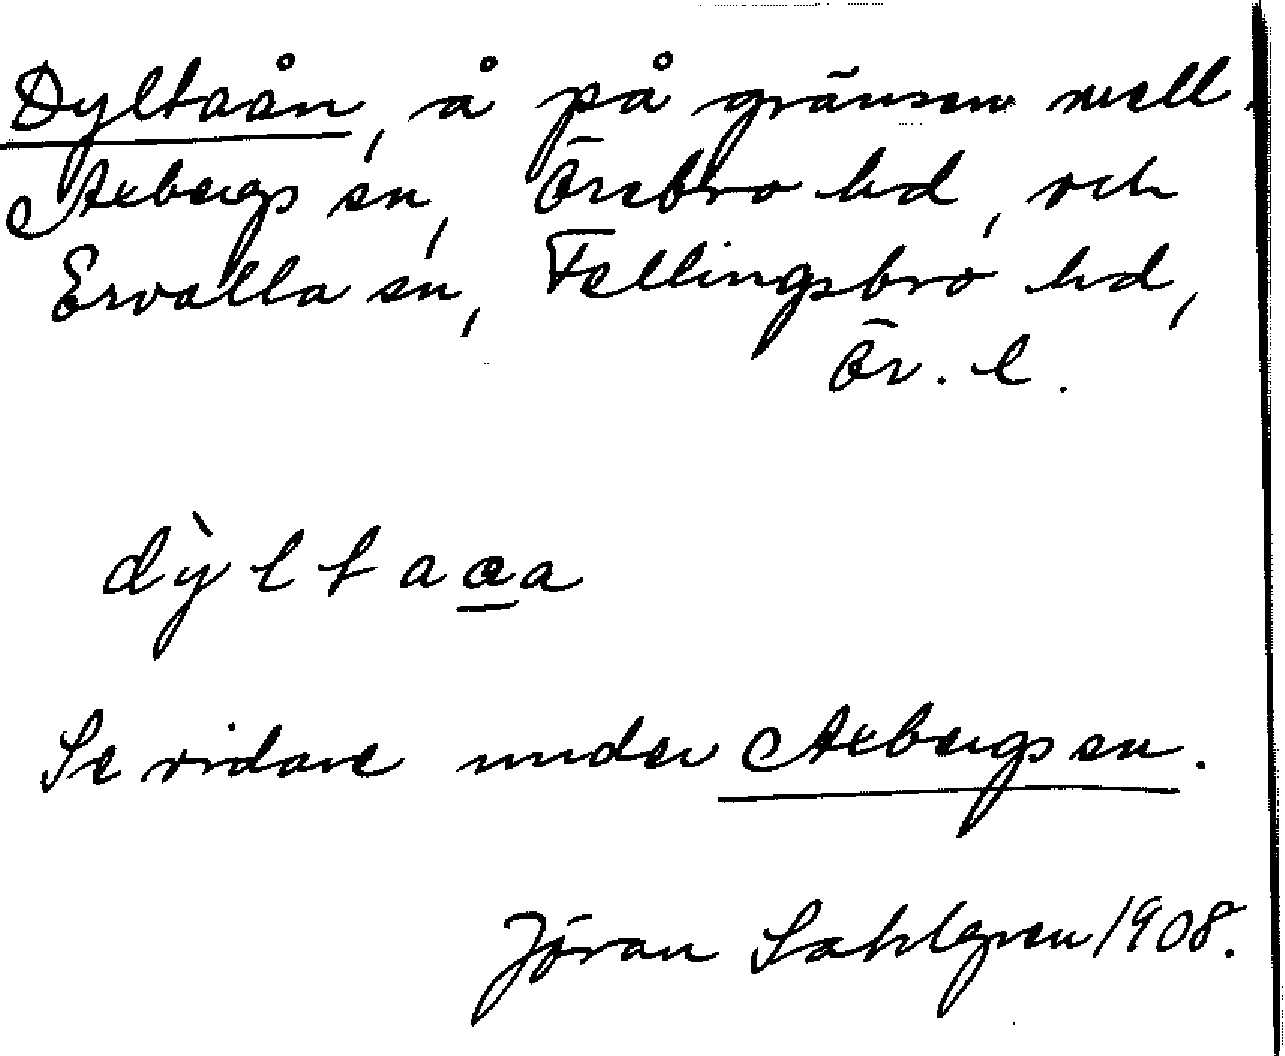 Dyltaån, å på gränsen mell.
Axbergs sn, Örebro hd, och
Ervalla sn, Fellingsbro hd,
Ör. l.
dỳltaa̲a
Se vidare under Axbergs sn.
Jöran Sahlgren 1908.